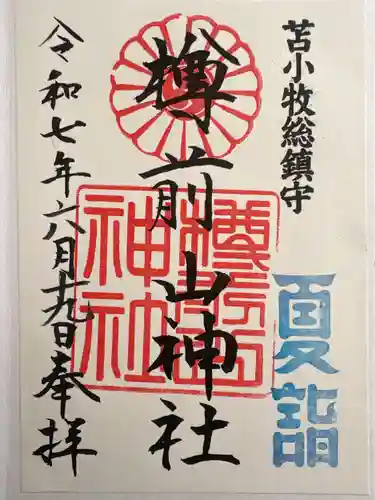 苫小牧総鎮守
夏詣
樽前山神社
樽前山
神社
令和七年八月十九日奉拝